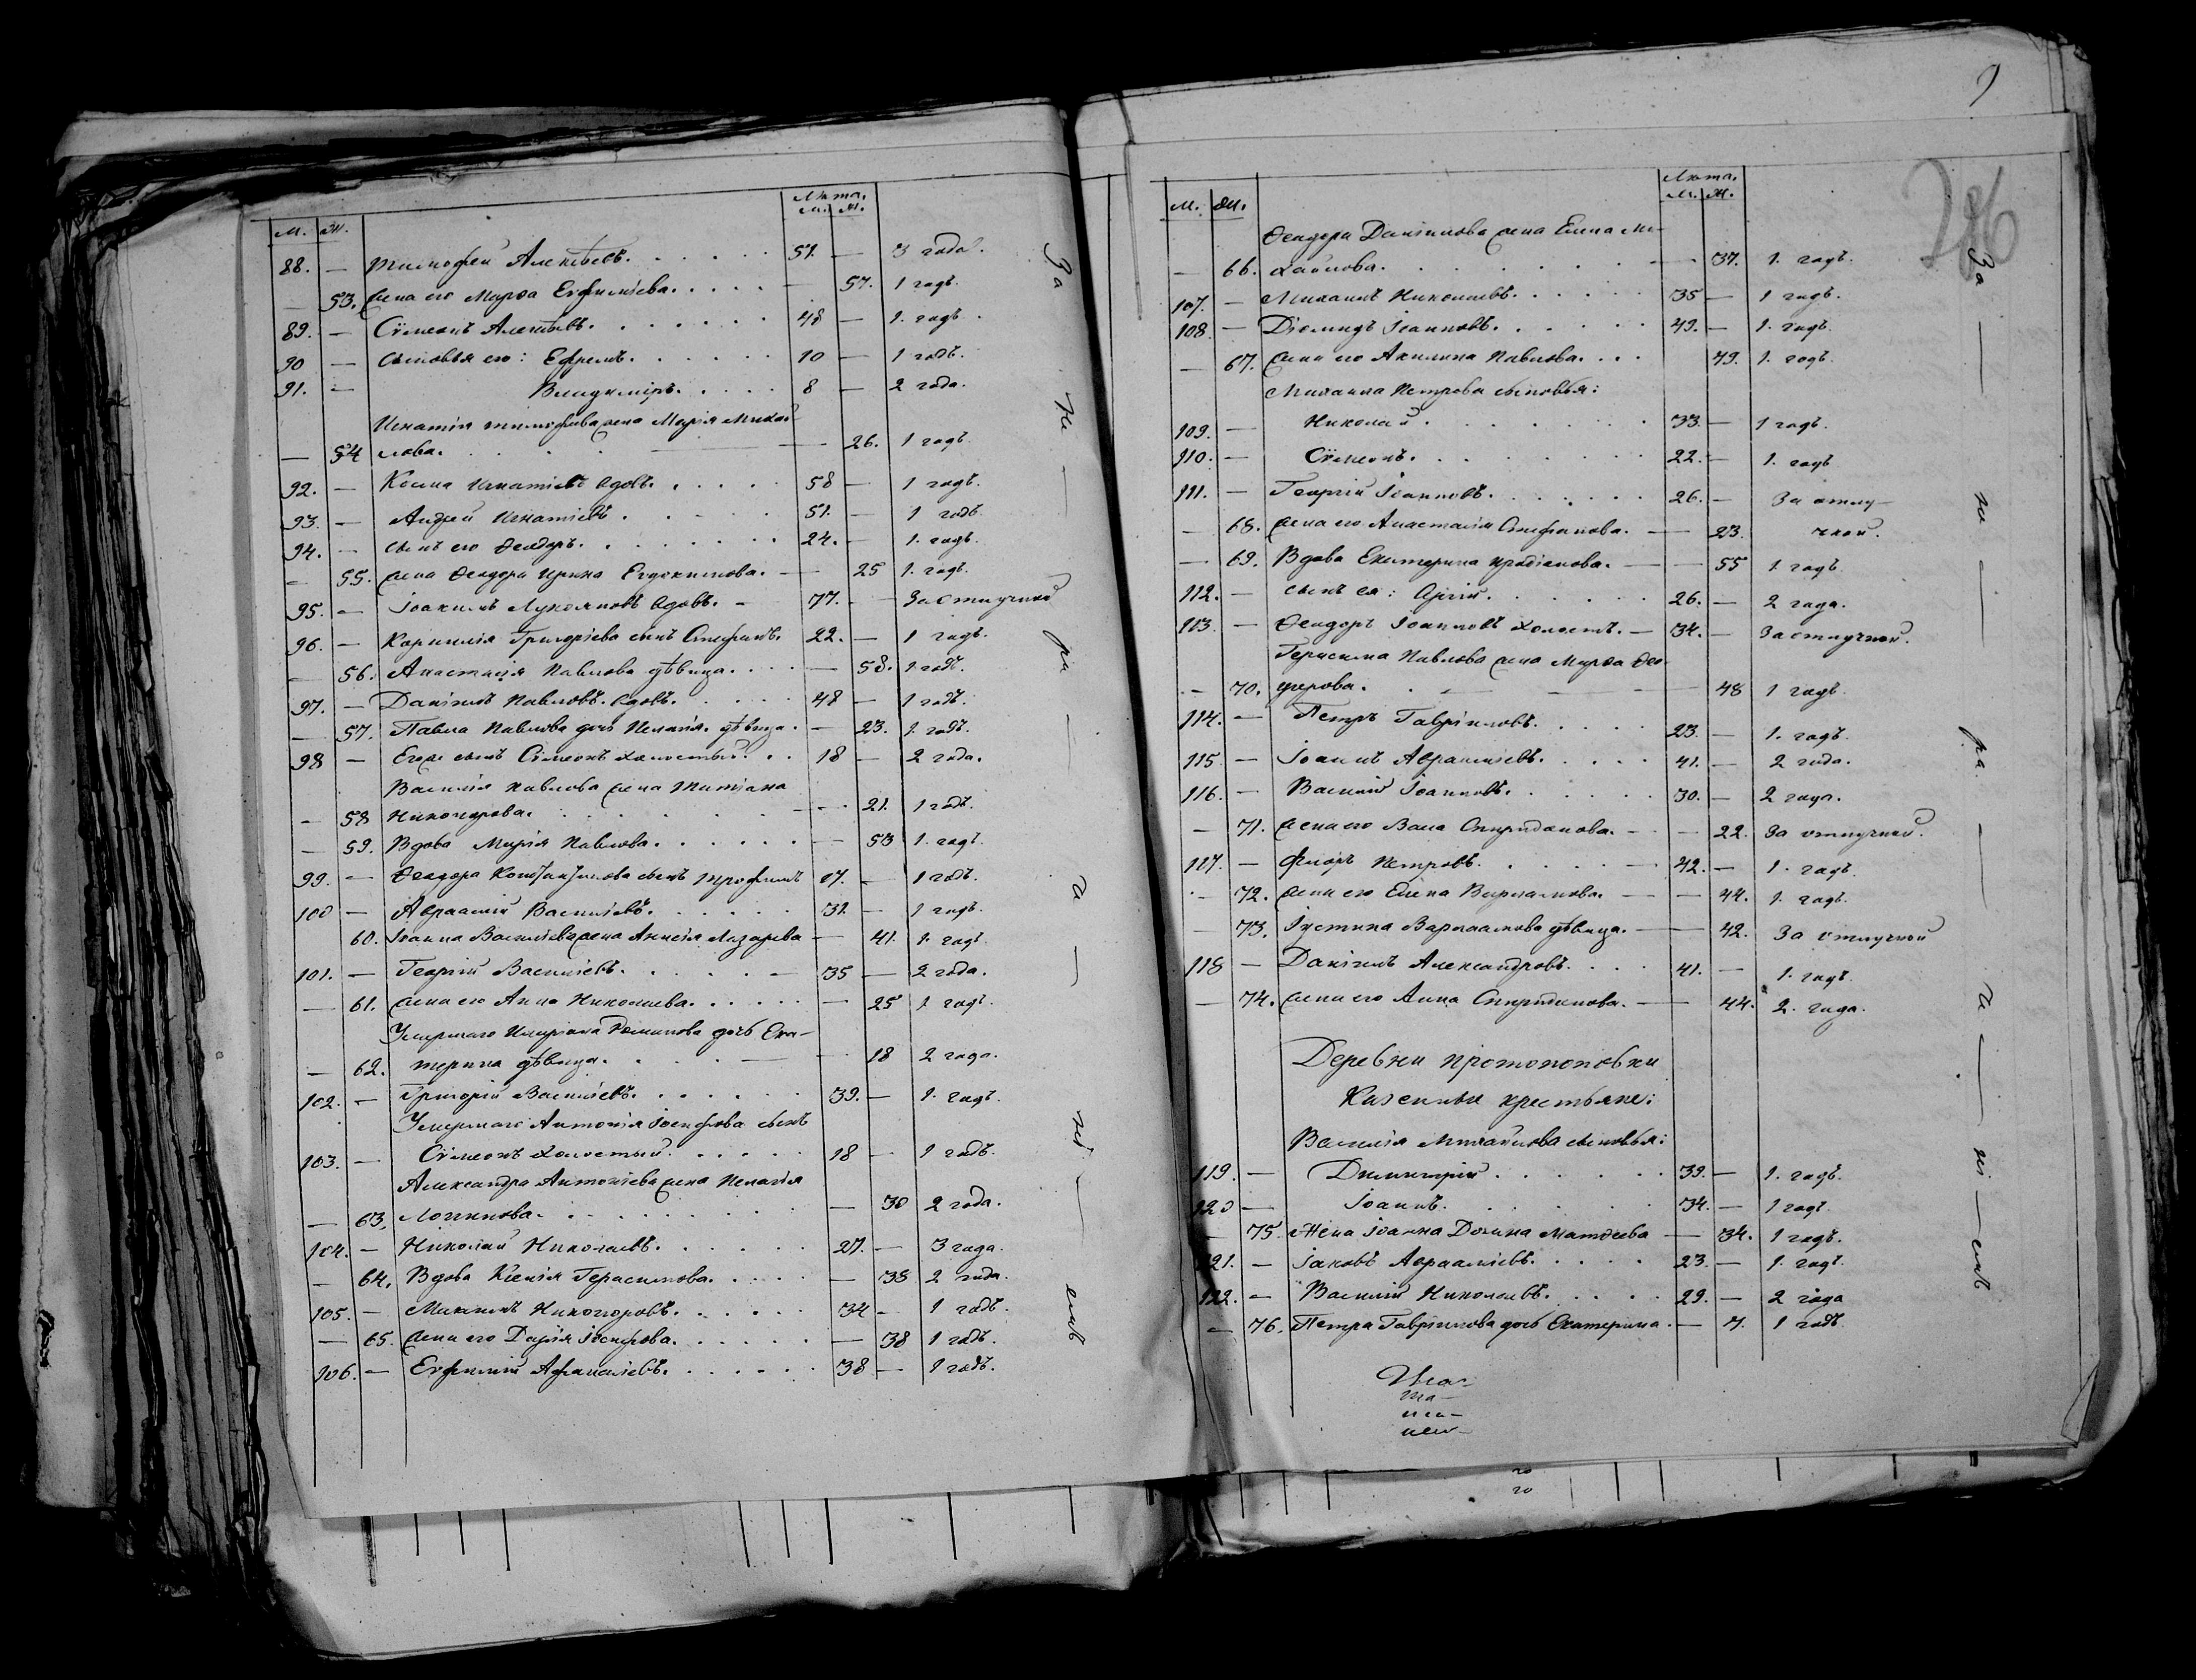 М. Ж. Лѣта.
М. Ж.
88. — Тимофей Алексѣевъ. 51. — 3 года.
— 53. Жена его Марѳа Евфиміева. — 57. 1 годъ.
89. — Сѵмеонъ Алексѣевъ. 48 — 1. годъ.
90 — Сыновья его: Ефремъ. 10 — 1 годъ.
91. — Владиміръ. 8 — 2 года.
Игнатія Тимофѣева жена Марія Михай-
— 54 лова. — 26. 1 годъ.
92. — Косма Игнатіевъ вдовъ. 58 — 1 годъ.
93. — Андрей Игнатіевъ. 51. — 1 годъ.
94. — Сынъ его Ѳеодоръ. 24. — 1. годъ.
— 55. Жена Ѳеодора Ирина Евдокимова. — 25 1. годъ.
95. — Іоакимъ Лукояновъ вдовъ. 77. — За отлучкой
96. — Корнилія Григоріева сынъ Стефанъ. 22. — 1 годъ.
— 56. Анастасія Павлова дѣвица. — 58. 1 годъ.
97. — Даніилъ Павловъ вдовъ. 48 — 1 годъ.
— 57. Павла Павлова дочь Пелагія дѣвица. — 23. 1. годъ.
98 — Его же сынъ Сѵмеонъ холостый. 18 — 2 года.
Василія Павлова жена Татіана
— 58 Никонорова. — 21. 1 годъ.
— 59. Вдова Марія Павлова. — 53 1. годъ.
99. — Ѳеодора Константинова сынъ Трофимъ 17. — 1 годъ.
100 — Авраамій Васильевъ. 31. — 1 годъ.
60. Іоанна Васильева жена Анисія Лазарева — 41. 1. годъ.
101. — Георгій Васильевъ. 35 — 2 года.
— 61. Жена его Анна Николаева. — 25 1. годъ.
Умершаго Иларіона Романова дочь Ека-
— 62. терина дѣвица. — 18 2 года.
102. — Григорій Васильевъ. 39. — 1. годъ.
Умершаго Антонія Іосифова сынъ
103. — Сѵмеонъ холостый. 18 — 1 годъ.
Александра Антоніева жена Пелагія
— 63. Логинова. — 30 2 года.
104. — Николай Николаевъ. 27. — 3 года.
— 64. Вдова Ксенія Герасимова. — 38 2 года.
105. — Михаилъ Никоноровъ. 34 — 1 годъ.
— 65. Жена его Дарія Іосифова. — 38 1 годъ.
106. — Евфимій Афанасіевъ. 38 — 1 годъ.
За — не — ра — ди — ні — емъ
9
М. Ж. Лѣта.
М. Ж.
Ѳеодора Даніилова жена Елена Ми-
— 66. хайлова. — 37. 1. годъ.
107. — Михаилъ Николаевъ. 35 — 1 годъ.
108. — Діомидъ Іоанновъ. 49. — 1. годъ.
— 67. Жена его Акилина Павлова. 49. 1. годъ.
Михаила Петрова сыновья:
109. — Николай. 33. — 1 годъ.
110. — Сѵмеонъ. 22. — 1. годъ
111. — Георгій Іоанновъ. 26. — За отлу-
— 68. Жена его Анастасія Стефанова. — 23. чкой.
— 69. Вдова Екатерина Иродіонова. — 55 1. годъ
112. — Сынъ ея: 26. — 2 года.
113. — Ѳеодоръ Іоанновъ холостъ. — 34. — За отлучкой.
Герасима Павлова жена Марѳа Ѳео-
— 70. дорова. — 48 1 годъ
114. — Петръ Гавріиловъ. 23. — 1. годъ.
115. — Іоаннъ Авраамiевъ. 41. — 2 года.
116. — Василій Іоанновъ. 30. — 2 года.
— 71. Жена его Васса Спиридонова. — 22. За отлучкой.
117. — Флоръ Петровъ. 42. — 1. годъ.
— 72. Жена его Елена Варлаамова. — 44. 1. годъ.
— 73. Іустина Варлаамова дѣвица. — 42. За отлучкой
118 — Даніилъ Александровъ. 41. — 1. годъ.
— 74. Жена его Анна Спиридонова. — 44. 2. года.
Деревни Протопоповки
Казенные крестьяне:
Василія Михайлова сыновья:
119. — Димитрій 39. — 1. годъ.
120 — Іоаннъ. 34. — 1 годъ.
— 75. Жена Іоанна Домна Матѳеева — 34. 1 годъ.
121. — Іаковъ Авраамiевъ. 23. — 1. годъ.
122. — Василій Николаевъ. 29. — 2 года
— 76. Петра Гавріилова дочь Екатерина. — 7. 1 годъ.
За — не — ра — ди — ні — емъ